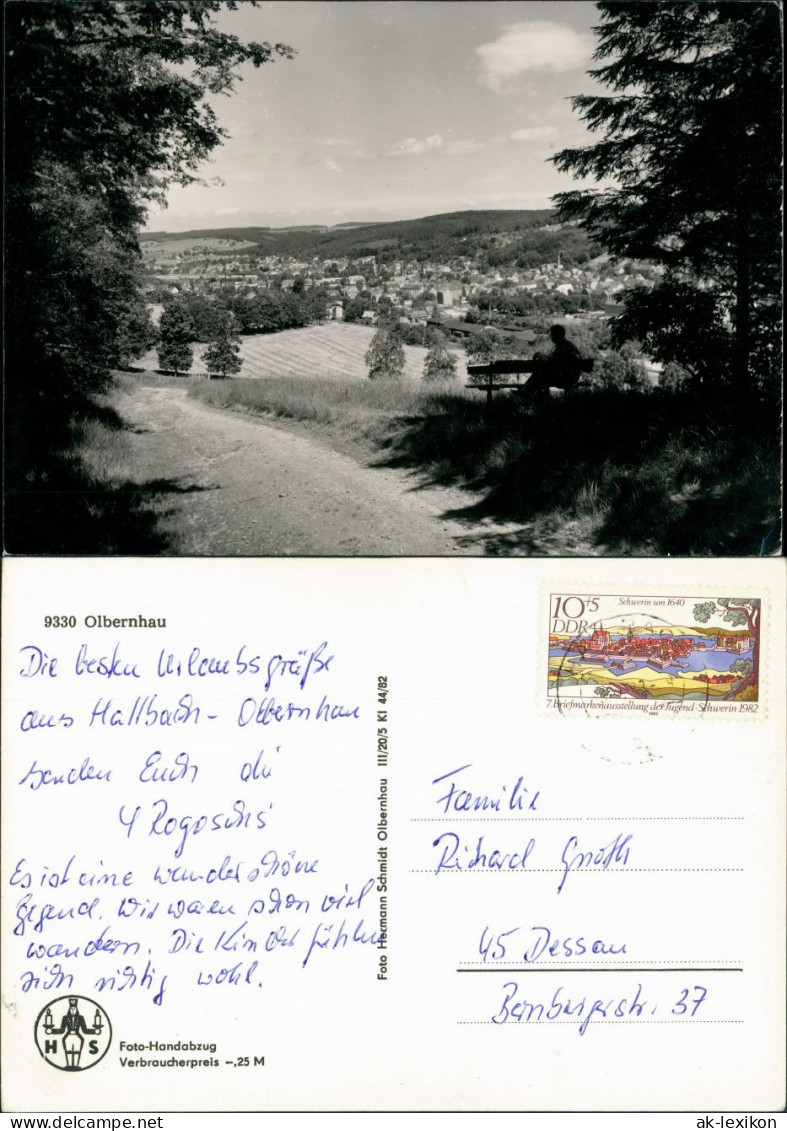 9330 Olbernhau
Die besten Urlaubsgrüße
aus Hallbach - Olbernhau
senden Euch die
4 Rogoschs'
Es ist eine wunderschöne
Gegend. Wir waren schon viel
wandern. Die Kinder fühlen
sich richtig wohl.
H S
Foto-Handabzug
Verbraucherpreis -,25 M
Foto Hermann Schmidt Olbernhau III/20/5 KI 44/82
10+5
DDR
Schwerin um 1640
7. Briefmarkenausstellung der Jugend · Schwerin 1982
1982
Familie
Richard Gnoth
45 Dessau
Bernburgerstr. 37
© ak-lexikon
ak-lexikon.com